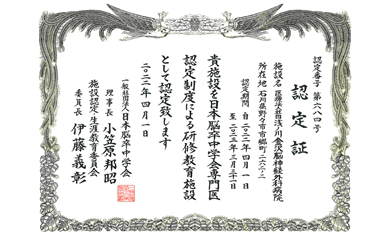 認定番号 第六八四号
認定証
施設名 医療法人社団浅ノ川 金沢脳神経外科病院
所在地 石川県野々市市郷町二六二-二
認定期間 自 二〇二二年四月一日
至 二〇二五年三月三十一日
貴施設を日本脳卒中学会専門医
認定制度による研修教育施設
として認定致します
二〇二二年四月一日
一般社団法人日本脳卒中学会
理事長 小笠原邦昭
施設認定・生涯教育委員会
委員長 伊藤義彰